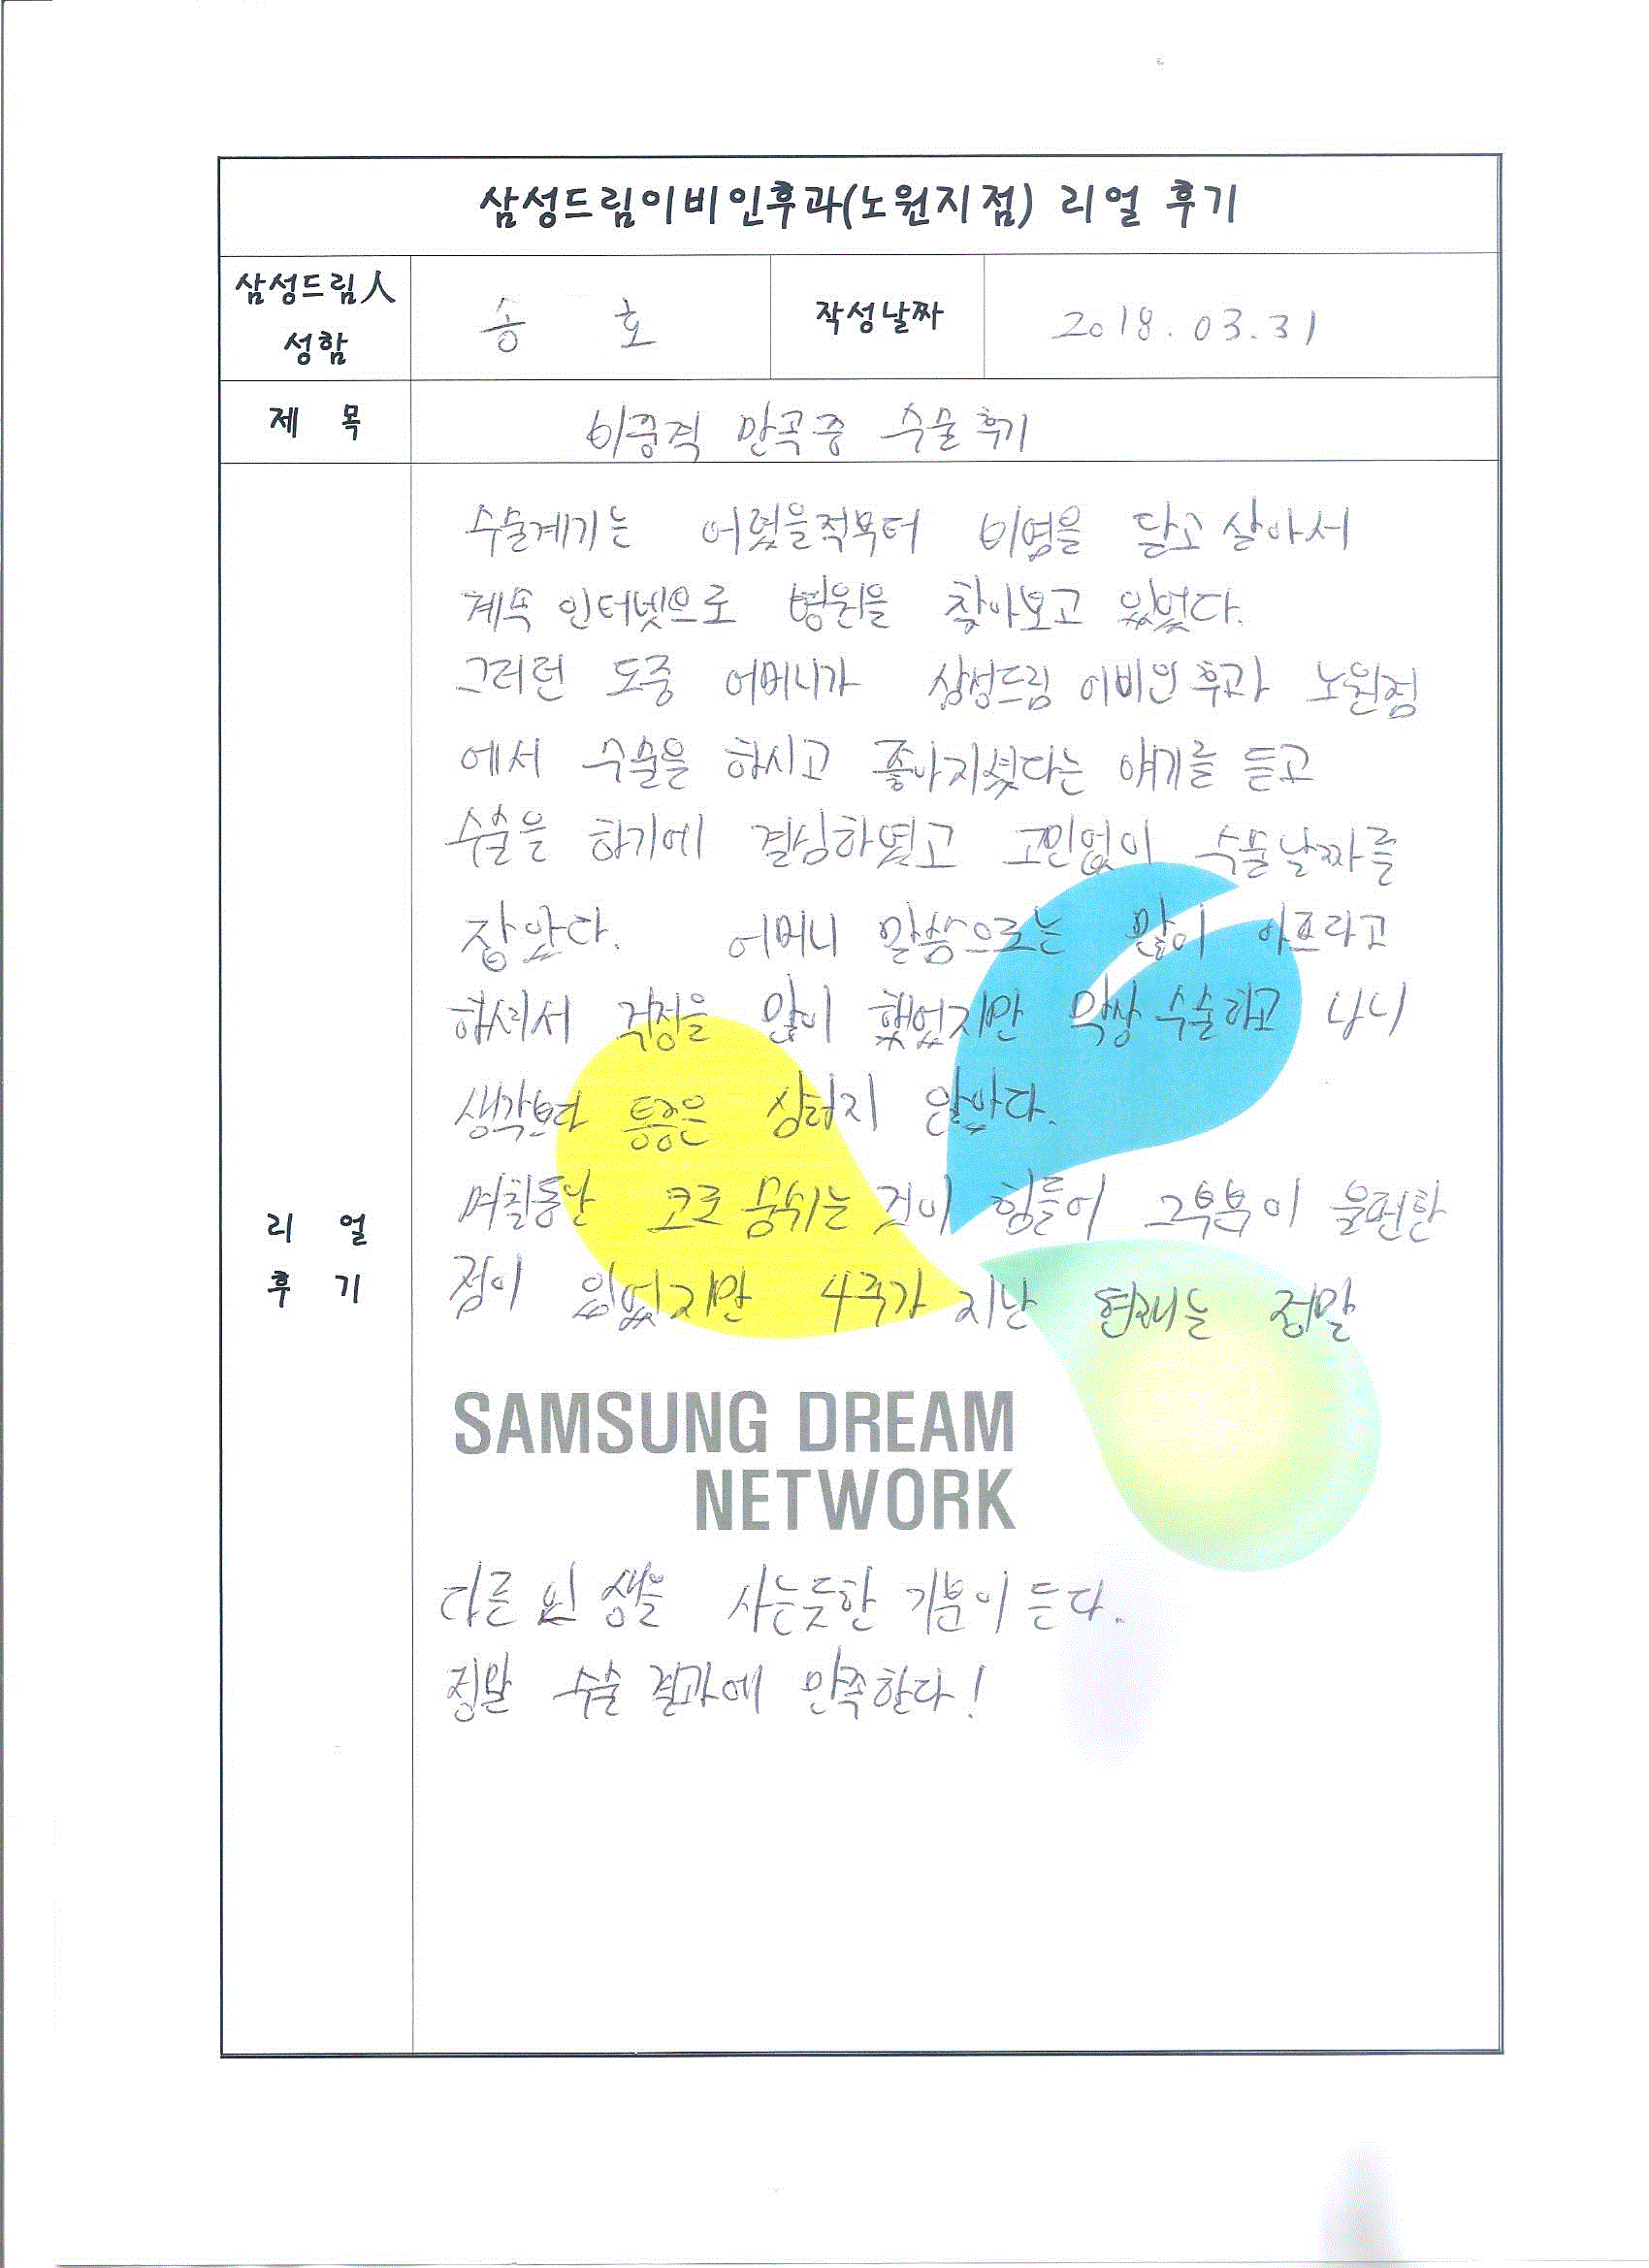 삼성드림이비인후과(노원지점) 리얼 후기
삼성드림人 성함
송 호
작성날짜
2018.03.31
제 목
비중격 만곡증 수술후기
리 얼
후 기
수술계기는 어렸을적부터 비염을 달고살아서
계속 인터넷으로 병원을 찾아보고 있었다.
그러던 도중 어머니가 삼성드림 이비인후과 노원점
에서 수술을 하시고 좋아지셨다는 얘기를 듣고
수술을 하기에 결심하였고 고민없이 수술날짜를
잡았다. 어머니 말씀으로는 많이 아프라고
하셔서 걱정을 많이 했었지만 막상 수술하고 나니
생각보다 통증은 심하지 않았다.
며칠동안 코로 숨쉬는 것이 힘들어 그부분이 불편한
점이 있었지만 4주가 지난 현재는 정말
SAMSUNG DREAM
NETWORK
다른 인생을 사는듯한 기분이 든다.
정말 수술 결과에 만족한다!